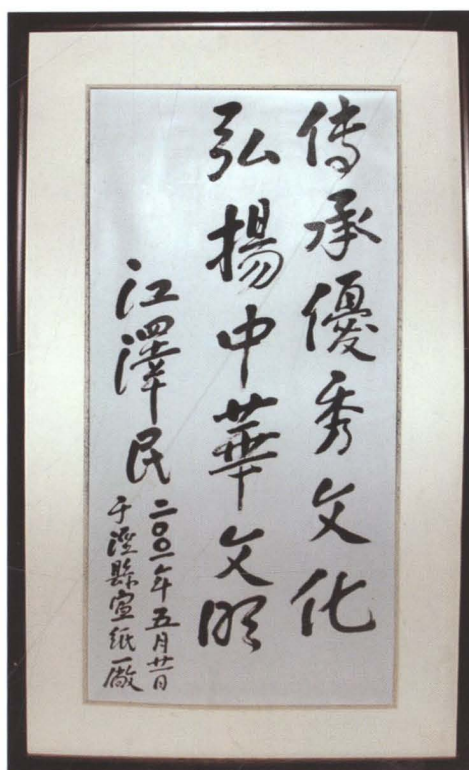 傳承優秀文化
弘揚中華文明
江澤民
二〇〇一年五月廿日
于涇縣宣紙廠